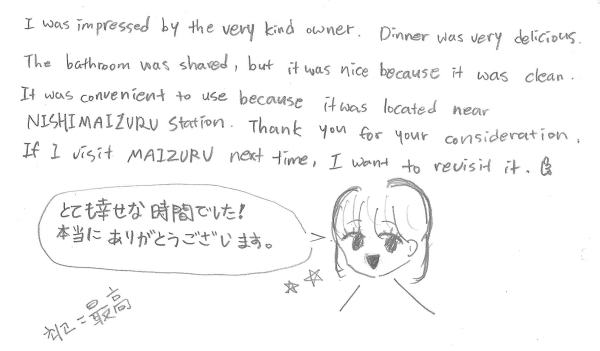 I was impressed by the very kind owner. Dinner was very delicious.
The bathroom was shared, but it was nice because it was clean.
It was convenient to use because it was located near
NISHIMAIZURU Station. Thank you for your consideration.
If I visit MAIZURU next time, I want to revisit it.
とても幸せな時間でした!
本当にありがとうございます。
최고=最高